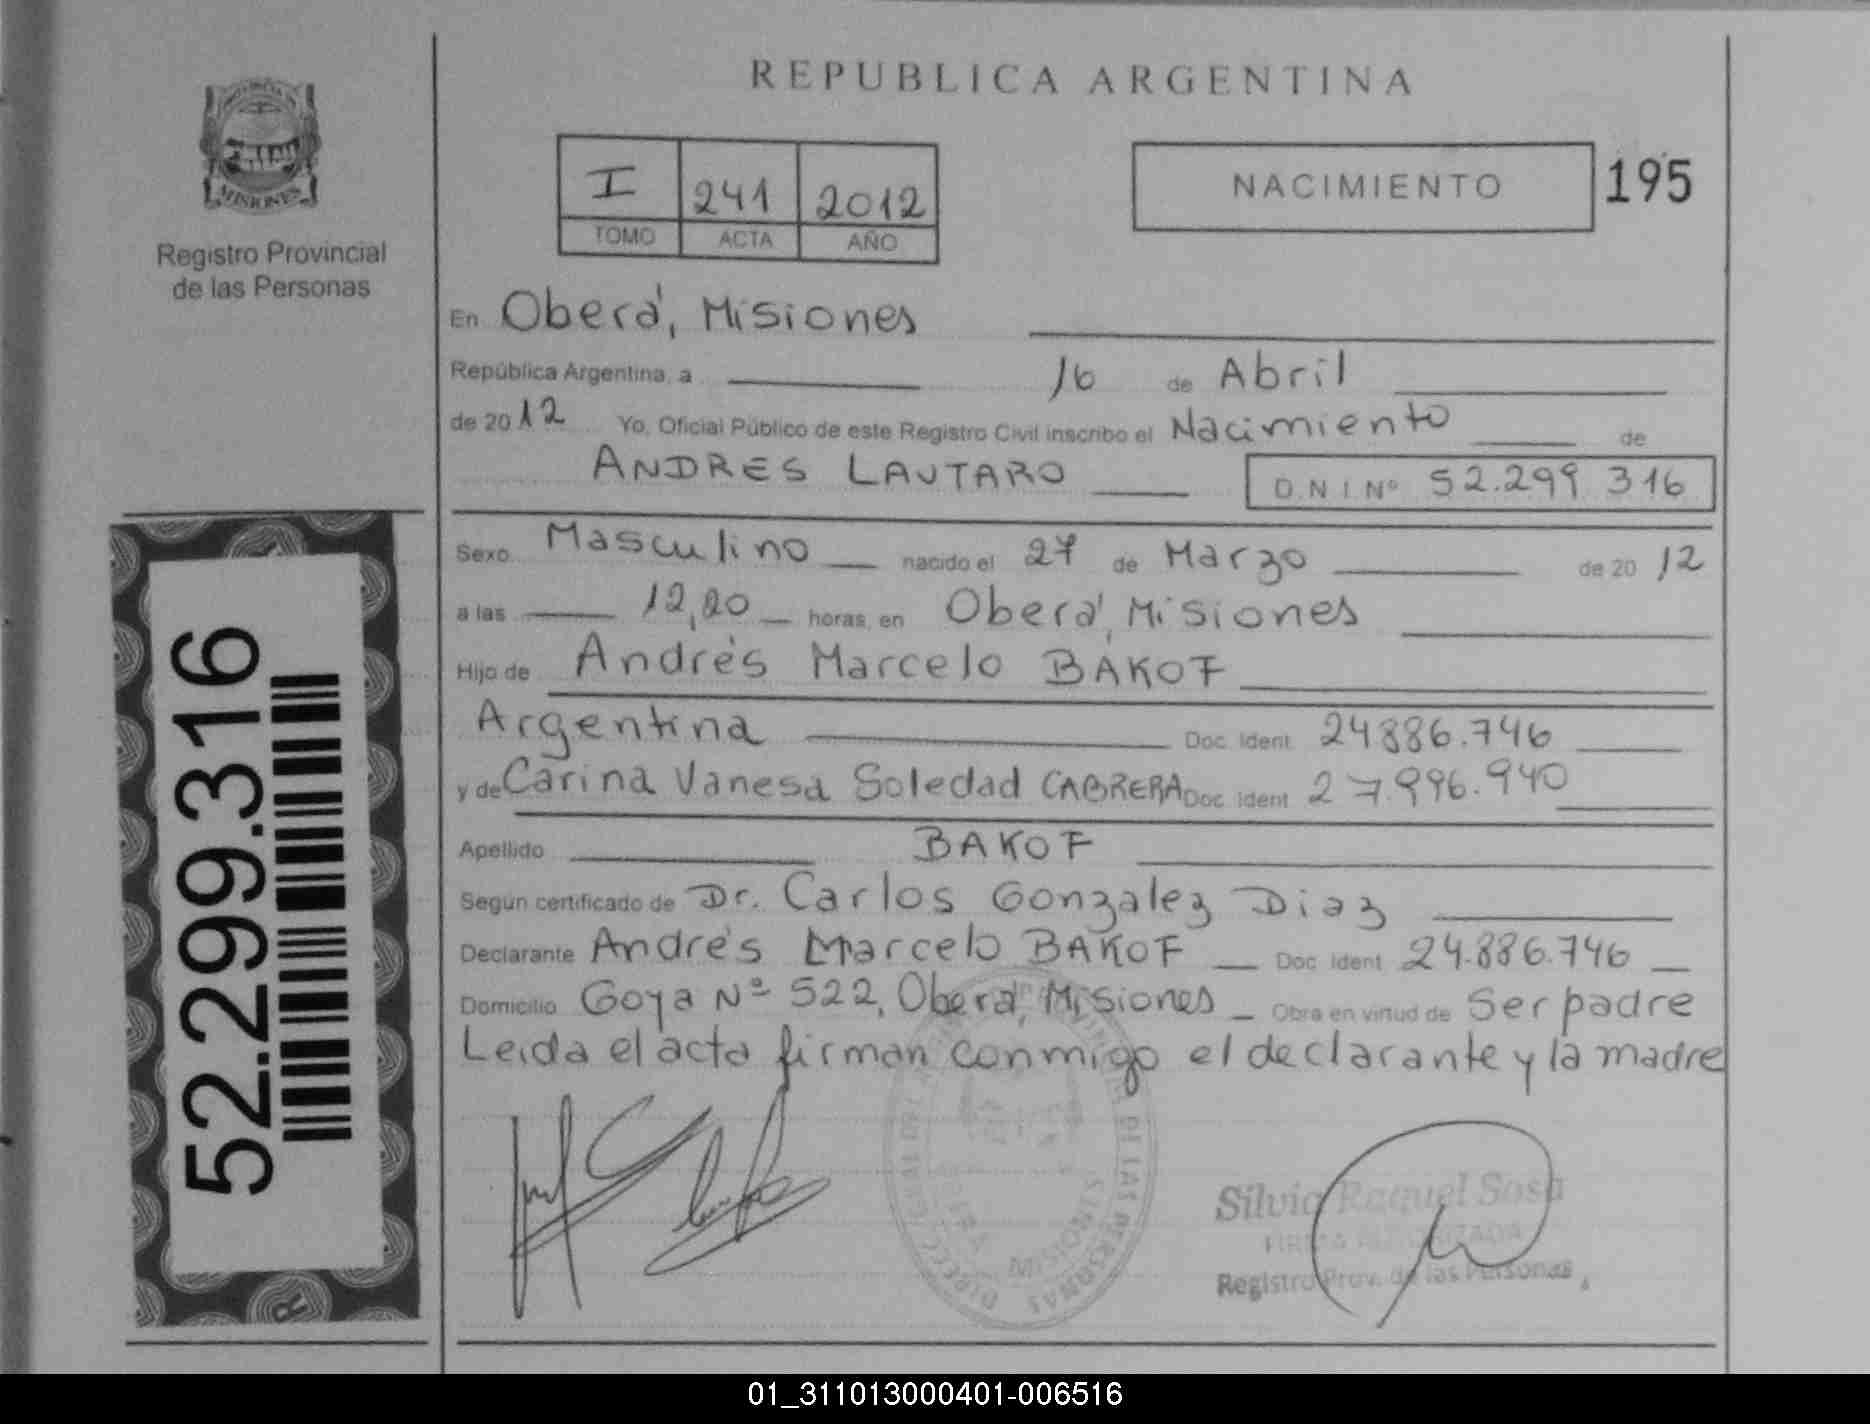 REPUBLICA ARGENTINA
PROVINCIA DE
MISIONES
Registro Provincial
de las Personas
I 241 2012
TOMO ACTA AÑO
NACIMIENTO 195
En Oberá, Misiones
República Argentina, a 16 de Abril
de 2012 Yo, Oficial Público de este Registro Civil inscribo el Nacimiento de
ANDRES LAUTARO D.N.I.Nº 52.299.316
Sexo Masculino nacido el 27 de Marzo de 2012
a las 12,20 horas, en Oberá, Misiones
Hijo de Andrés Marcelo BAKOF
Argentina Doc. Ident. 24886.746
y de Carina Vanesa Soledad CABRERA Doc. Ident. 27.996.940
Apellido BAKOF
Según certificado de Dr. Carlos Gonzalez Diaz
Declarante Andrés Marcelo BAKOF Doc. Ident. 24.886.746
Domicilio Goya Nº 522, Oberá, Misiones Obra en virtud de Ser padre
Leida el acta firman conmigo el declarante y la madre
52.299.316
MISIONES
Silvia Raquel Sosa
FIRMA AUTORIZADA
Registro Prov. de las Personas
01_311013000401-006516